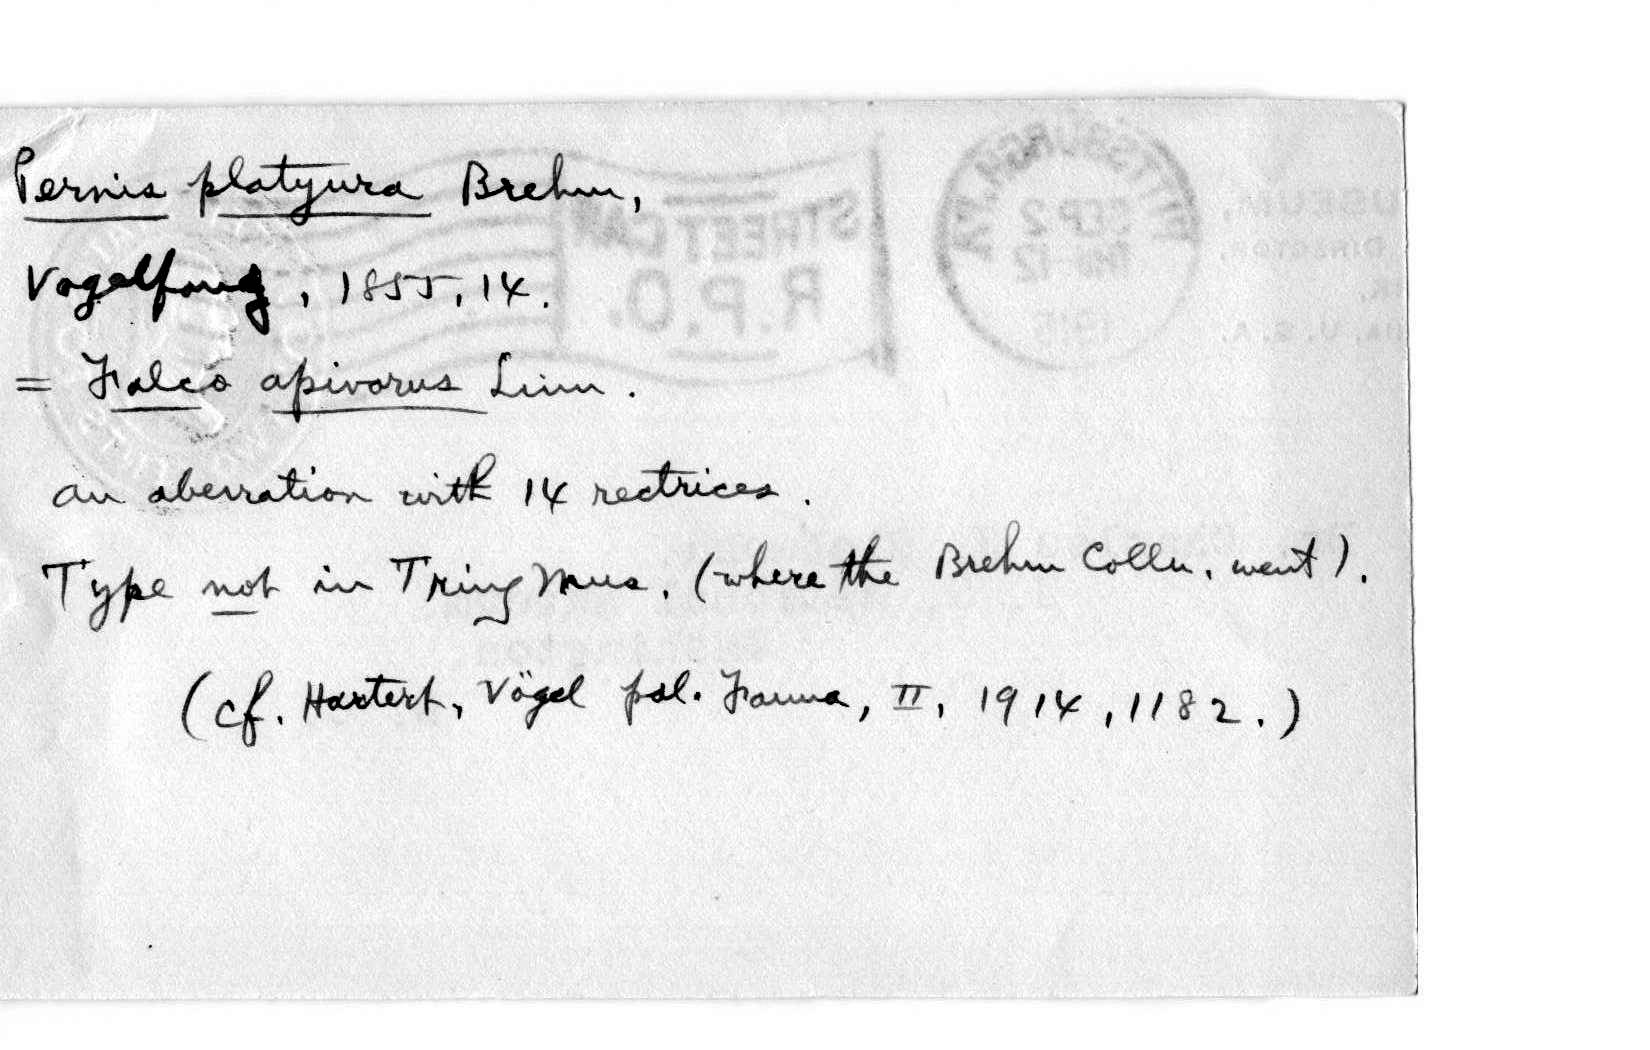 Pernis platyura Brehm,
Vogelfang, 1855, 14.
= Falco apivorus Linn.
an aberration with 14 rectrices.
Type not in Tring Mus. (where the Brehm Colln. went).
(cf. Hartert, Vögel pal. Fauna, II, 1914, 1182.)
PITTSBURGH, PA.
SEP 2
12
STREET CAR
R.P.O.
USEUM,
DIRECTOR,
U.S.A.